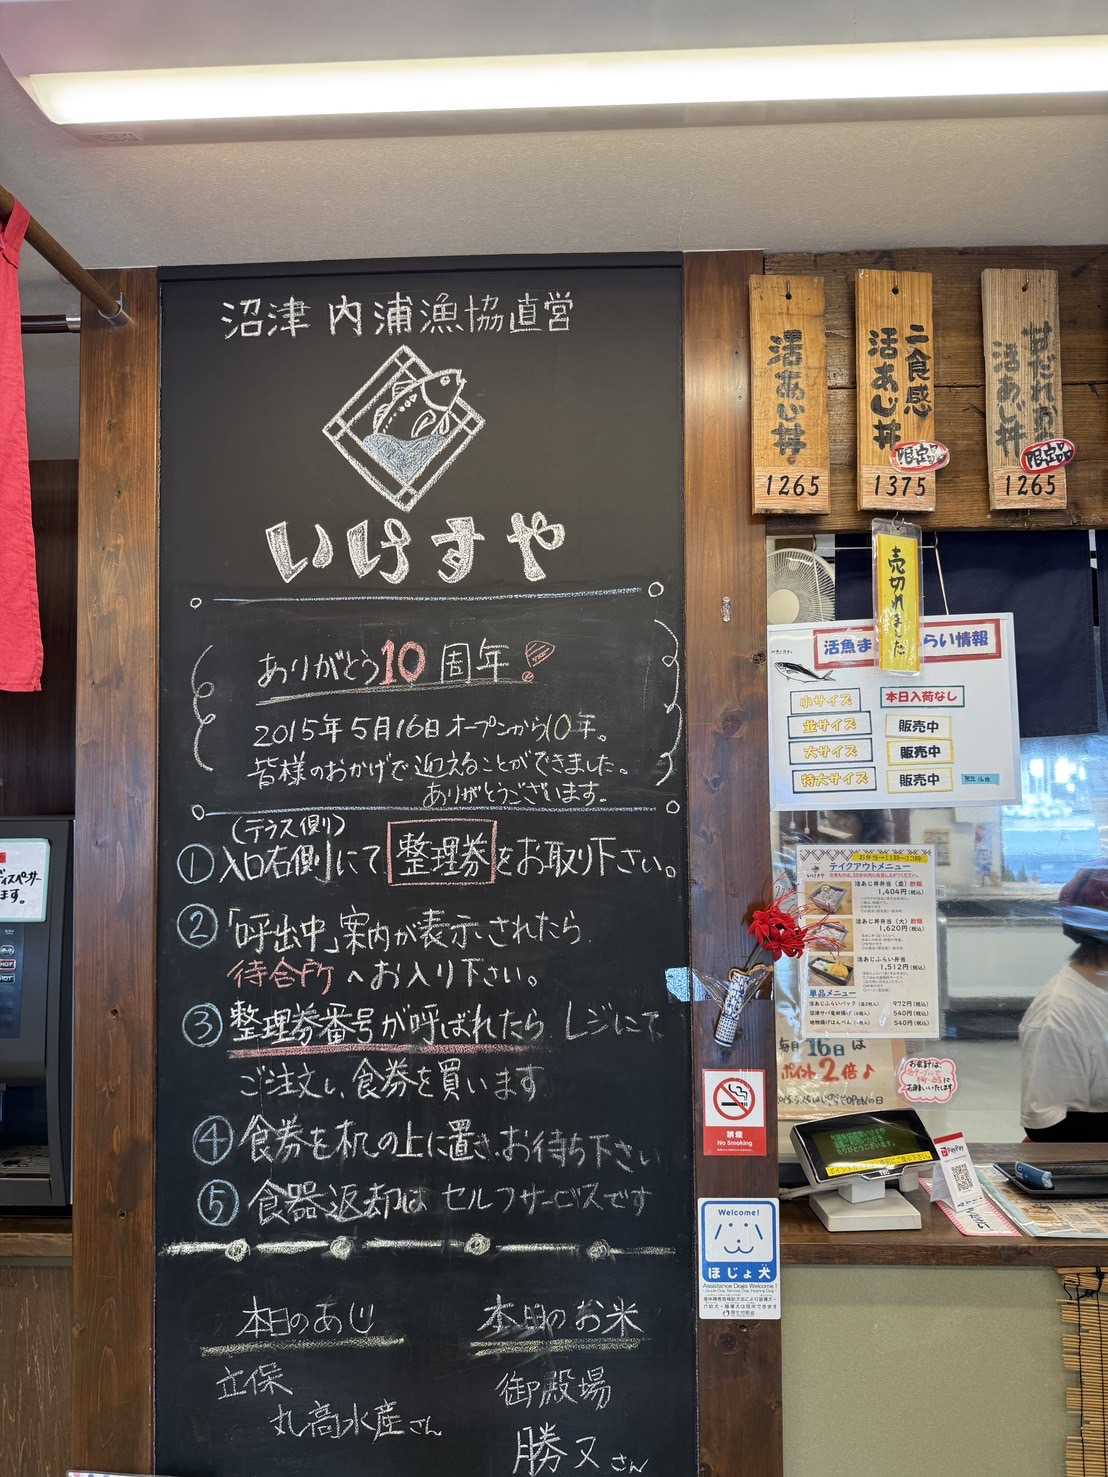 沼津 内浦漁協直営
いけすや
ありがとう10周年
2015年5月16日オープンから10年。
皆様のおかげで迎えることができました。
ありがとうございます。
(テラス側)
①入口右側にて整理券をお取り下さい。
②「呼出中」案内が表示されたら
待合所へお入り下さい。
③整理券番号が呼ばれたらレジにて
ご注文し、食券を買います
④食券を机の上に置き、お待ち下さい
⑤食器返却はセルフサービスです
本日のあじ
立保
丸高水産さん
本日のお米
御殿場
勝又さん
活あじ丼
1265
二食感
活あじ丼
限定品
1375
活あじ丼
限定品
1265
売切れました
活魚ま
らい情報
小サイズ
本日入荷なし
並サイズ
販売中
大サイズ
販売中
特大サイズ
販売中
お弁当→11時〜13時
いけすや
テイクアウトメニュー
活あじ丼弁当(並)
1,404円(税込)
活あじ丼弁当(大)
1,620円(税込)
活あじふらい弁当
1,512円(税込)
単品メニュー
活あじふらいパック
972円(税込)
540円(税込)
540円(税込)
毎月16日は
ポイント2倍♪
禁煙
No Smoking
PayPay
Welcome!
ほじょ犬
Assistance Dogs Welcome!